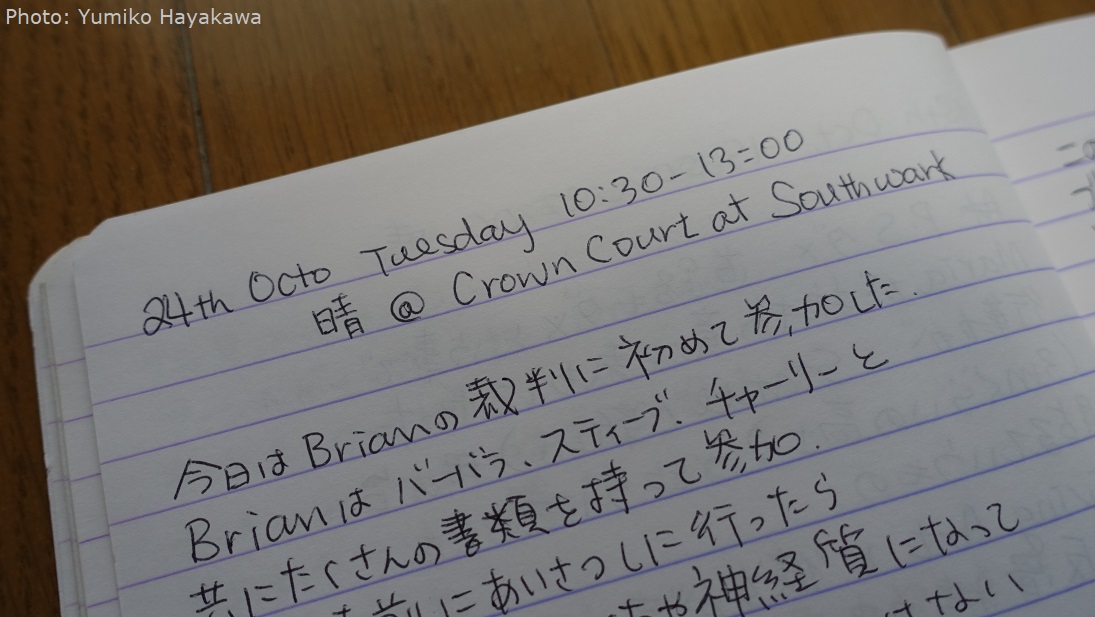 Photo: Yumiko Hayakawa
24th Octo Tuesday 10:30-13:00
晴 @ Crown Court at Southwark
今日はBrianの裁判に初めて参加した.
Brianはバーバラ、スティーブ、チャーリーと
共にたくさんの書類を持って参加.
前にあいさつしに行ったら
や神経質になって
ない